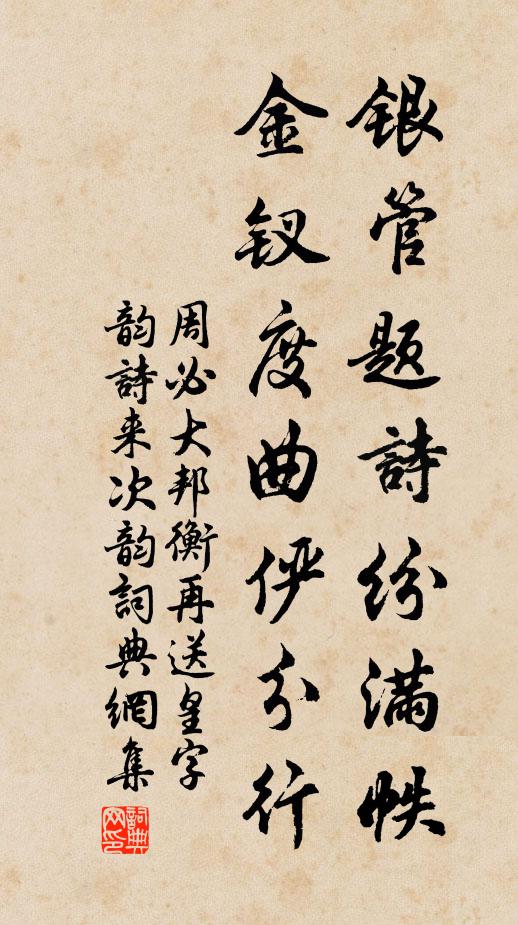 银管题詩纷满帙
金钗度曲俨分行
周必大邦衡再送皇字
韵詩来次韵詞典網集
詞典网印